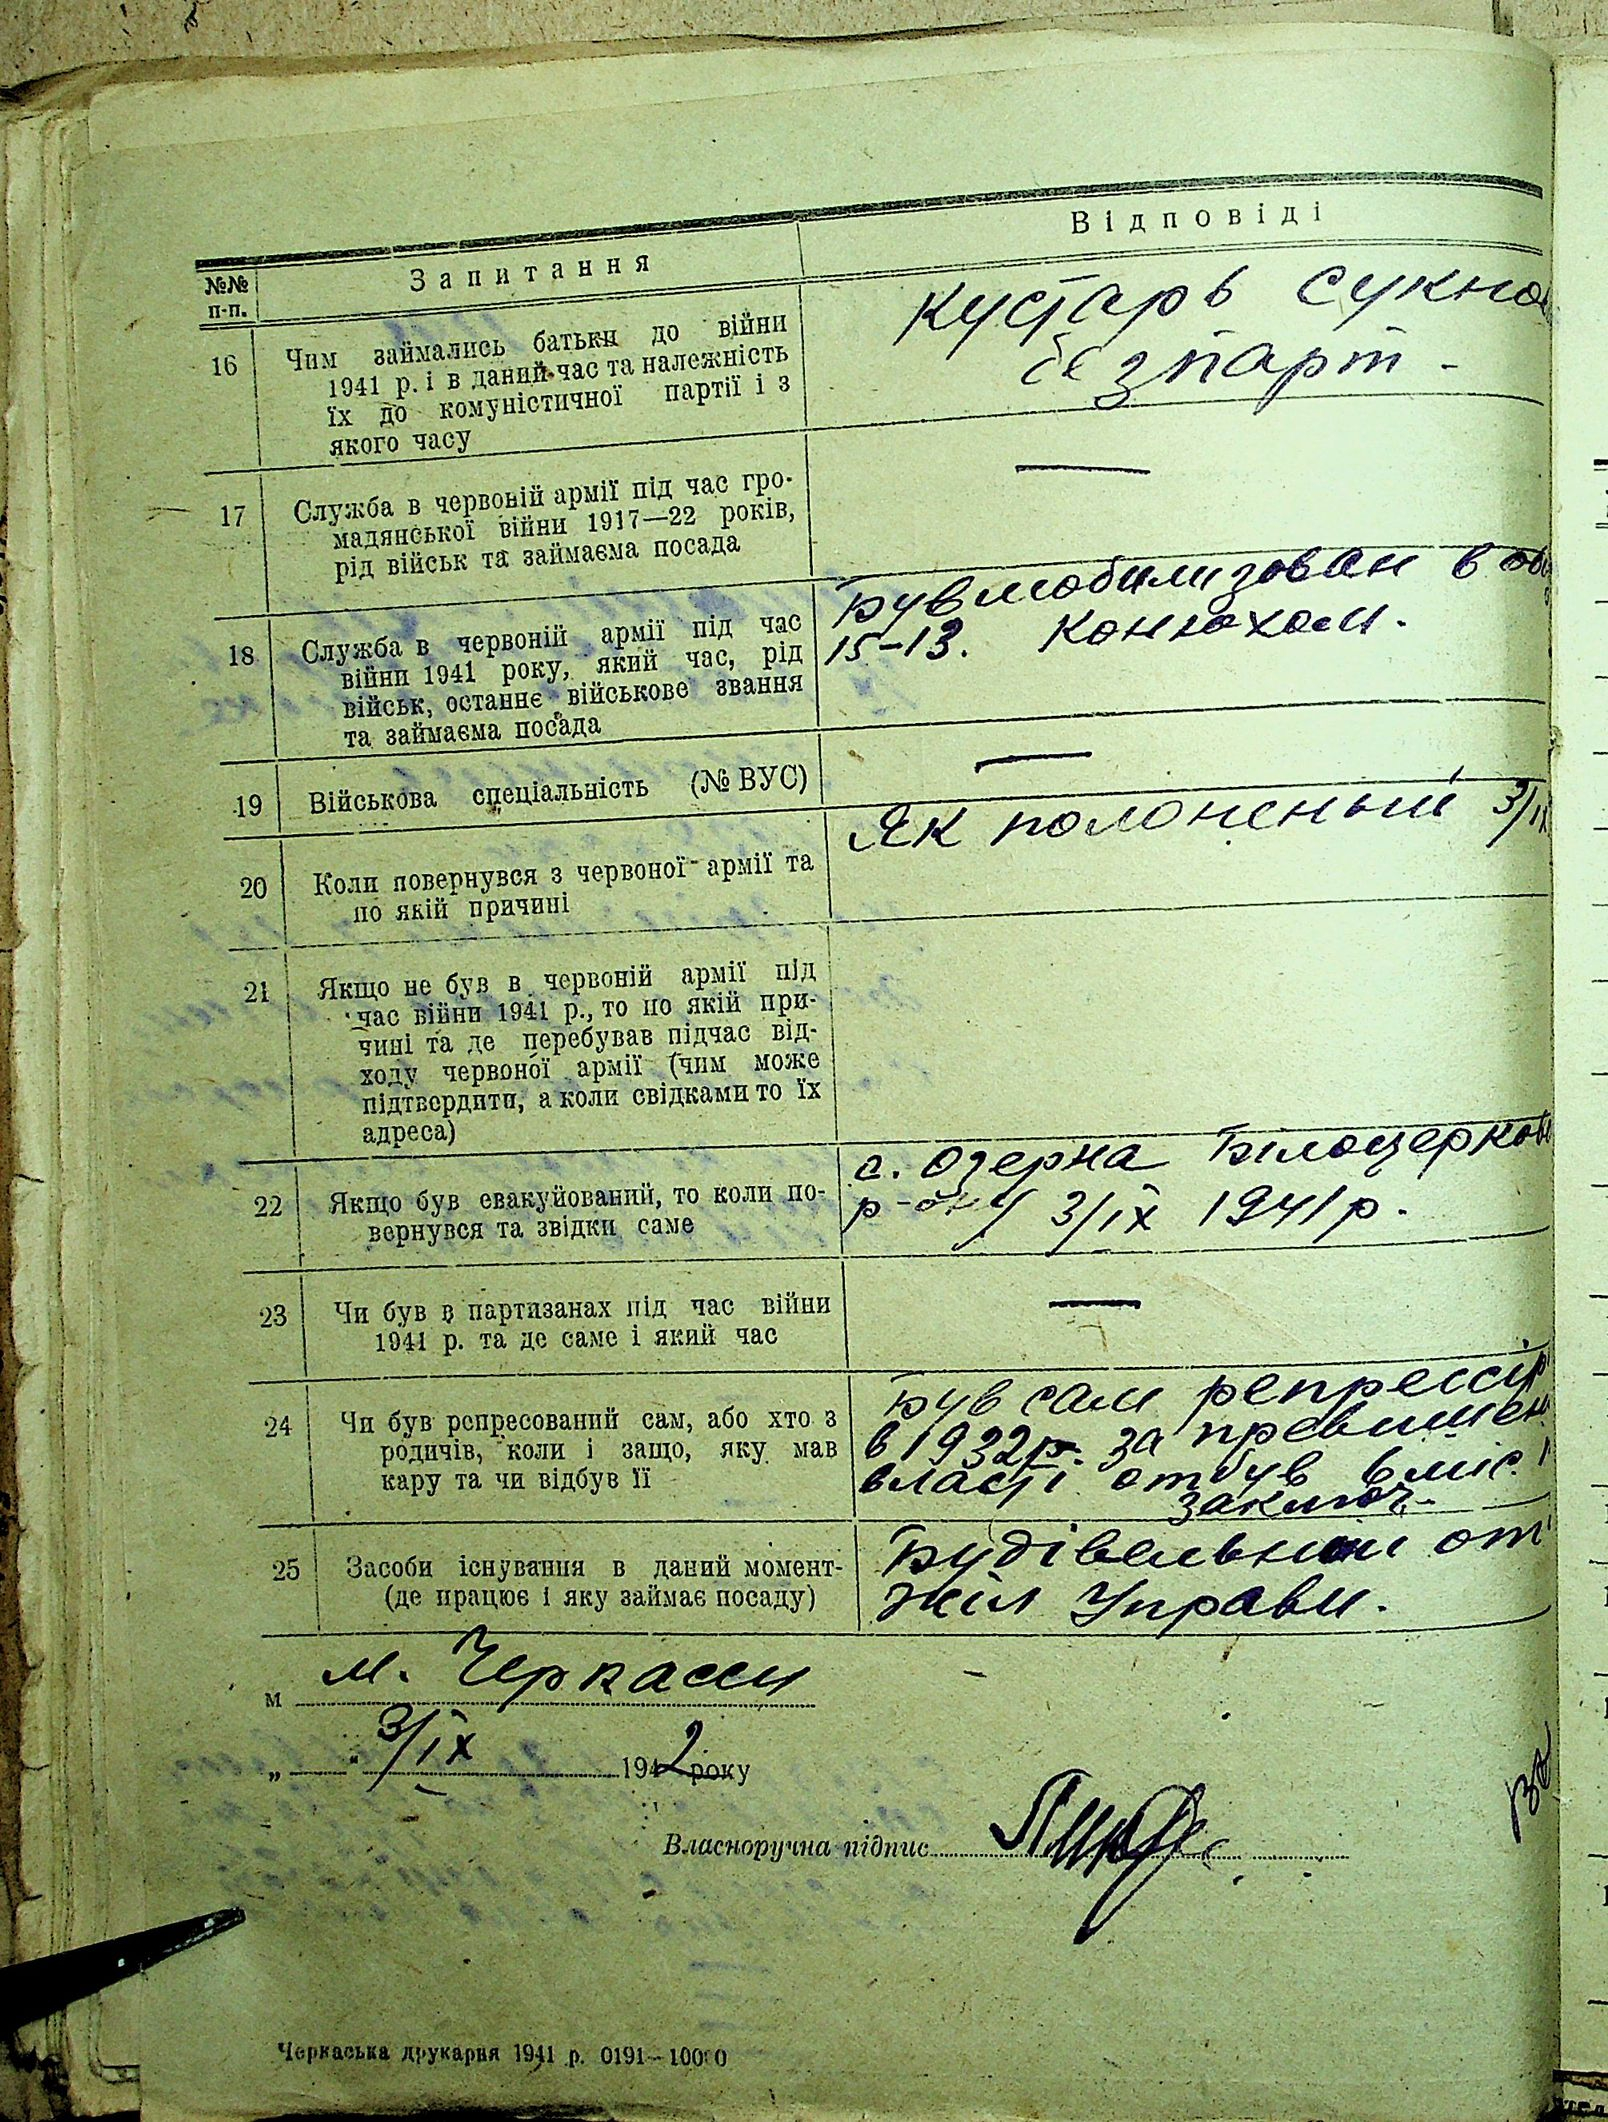 Відповіді
№№ п-п. Запитання
16 Чим займались батьки до війни
1941 р. і в даний час та належність
їх до комуністичної партії і з
якого часу
Кустарь сукно
безпарт -
17 Служба в червоній армії під час гро-
мадянської війни 1917—22 років,
рід військ та займаєма посада
—
18 Служба в червоній армії під час
війни 1941 року, який час, рід
військ, останнє військове звання
та займаєма посада
Був мобилизован в
15-13. Конюхом.
19 Військова спеціальність (№ ВУС)
—
20 Коли повернувся з червоної армії та
по якій причині
Як полоненый 3/IX
21 Якщо не був в червоній армії під
час війни 1941 р., то по якій при-
чині та де перебував підчас від-
ходу червоної армії (чим може
підтвердити, а коли свідками то їх
адреса)
22 Якщо був евакуйований, то коли по-
вернувся та звідки саме
с. Озерна Білоцерков
р-ону 3/IX 1941 р.
23 Чи був в партизанах під час війни
1941 р. та де саме і який час
—
24 Чи був репресований сам, або хто з
родичів, коли і защо, яку мав
кару та чи відбув її
Був сам репрессір
в 1932р. за превишен
власті отбув 6 міс.
заключ.
25 Засоби існування в даний момент-
(де працює і яку займає посаду)
Будівельний от
жіл Управи.
м м. Черкасси
„ “ 3/IX 1942 року
Власноручна підпис
Черкаська друкарня 1941 р. 0191—10000